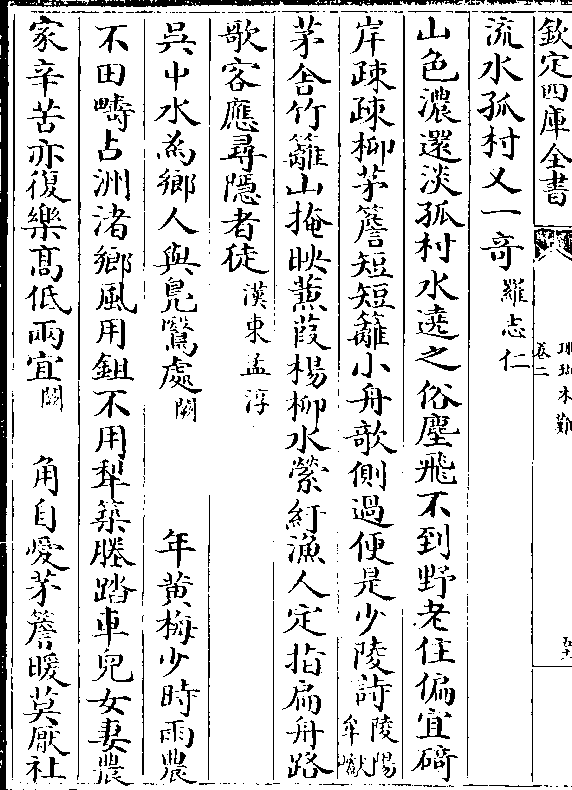 欽定四庫全書
珊瑚木難
卷二
流水孤村又一奇羅志仁
山色濃還淡孤村水遶之俗塵飛不到野老住偏宜碕
岸疎疎柳茅簷短短籬小舟歌側過便是少陵詩陵陽牟巘
茅舎竹籬山掩映蒹葭楊柳水縈紆漁人定指扁舟路
歌客應尋隱者徒漢東孟淳
呉中水為鄉人與鳧鷖處闕 年黄梅少時雨農
不田疇占洲渚鄉風用鉏不用犂築塍踏車兒女妻農
家辛苦亦復樂髙低兩宜闕 角自愛茅簷暖莫厭社